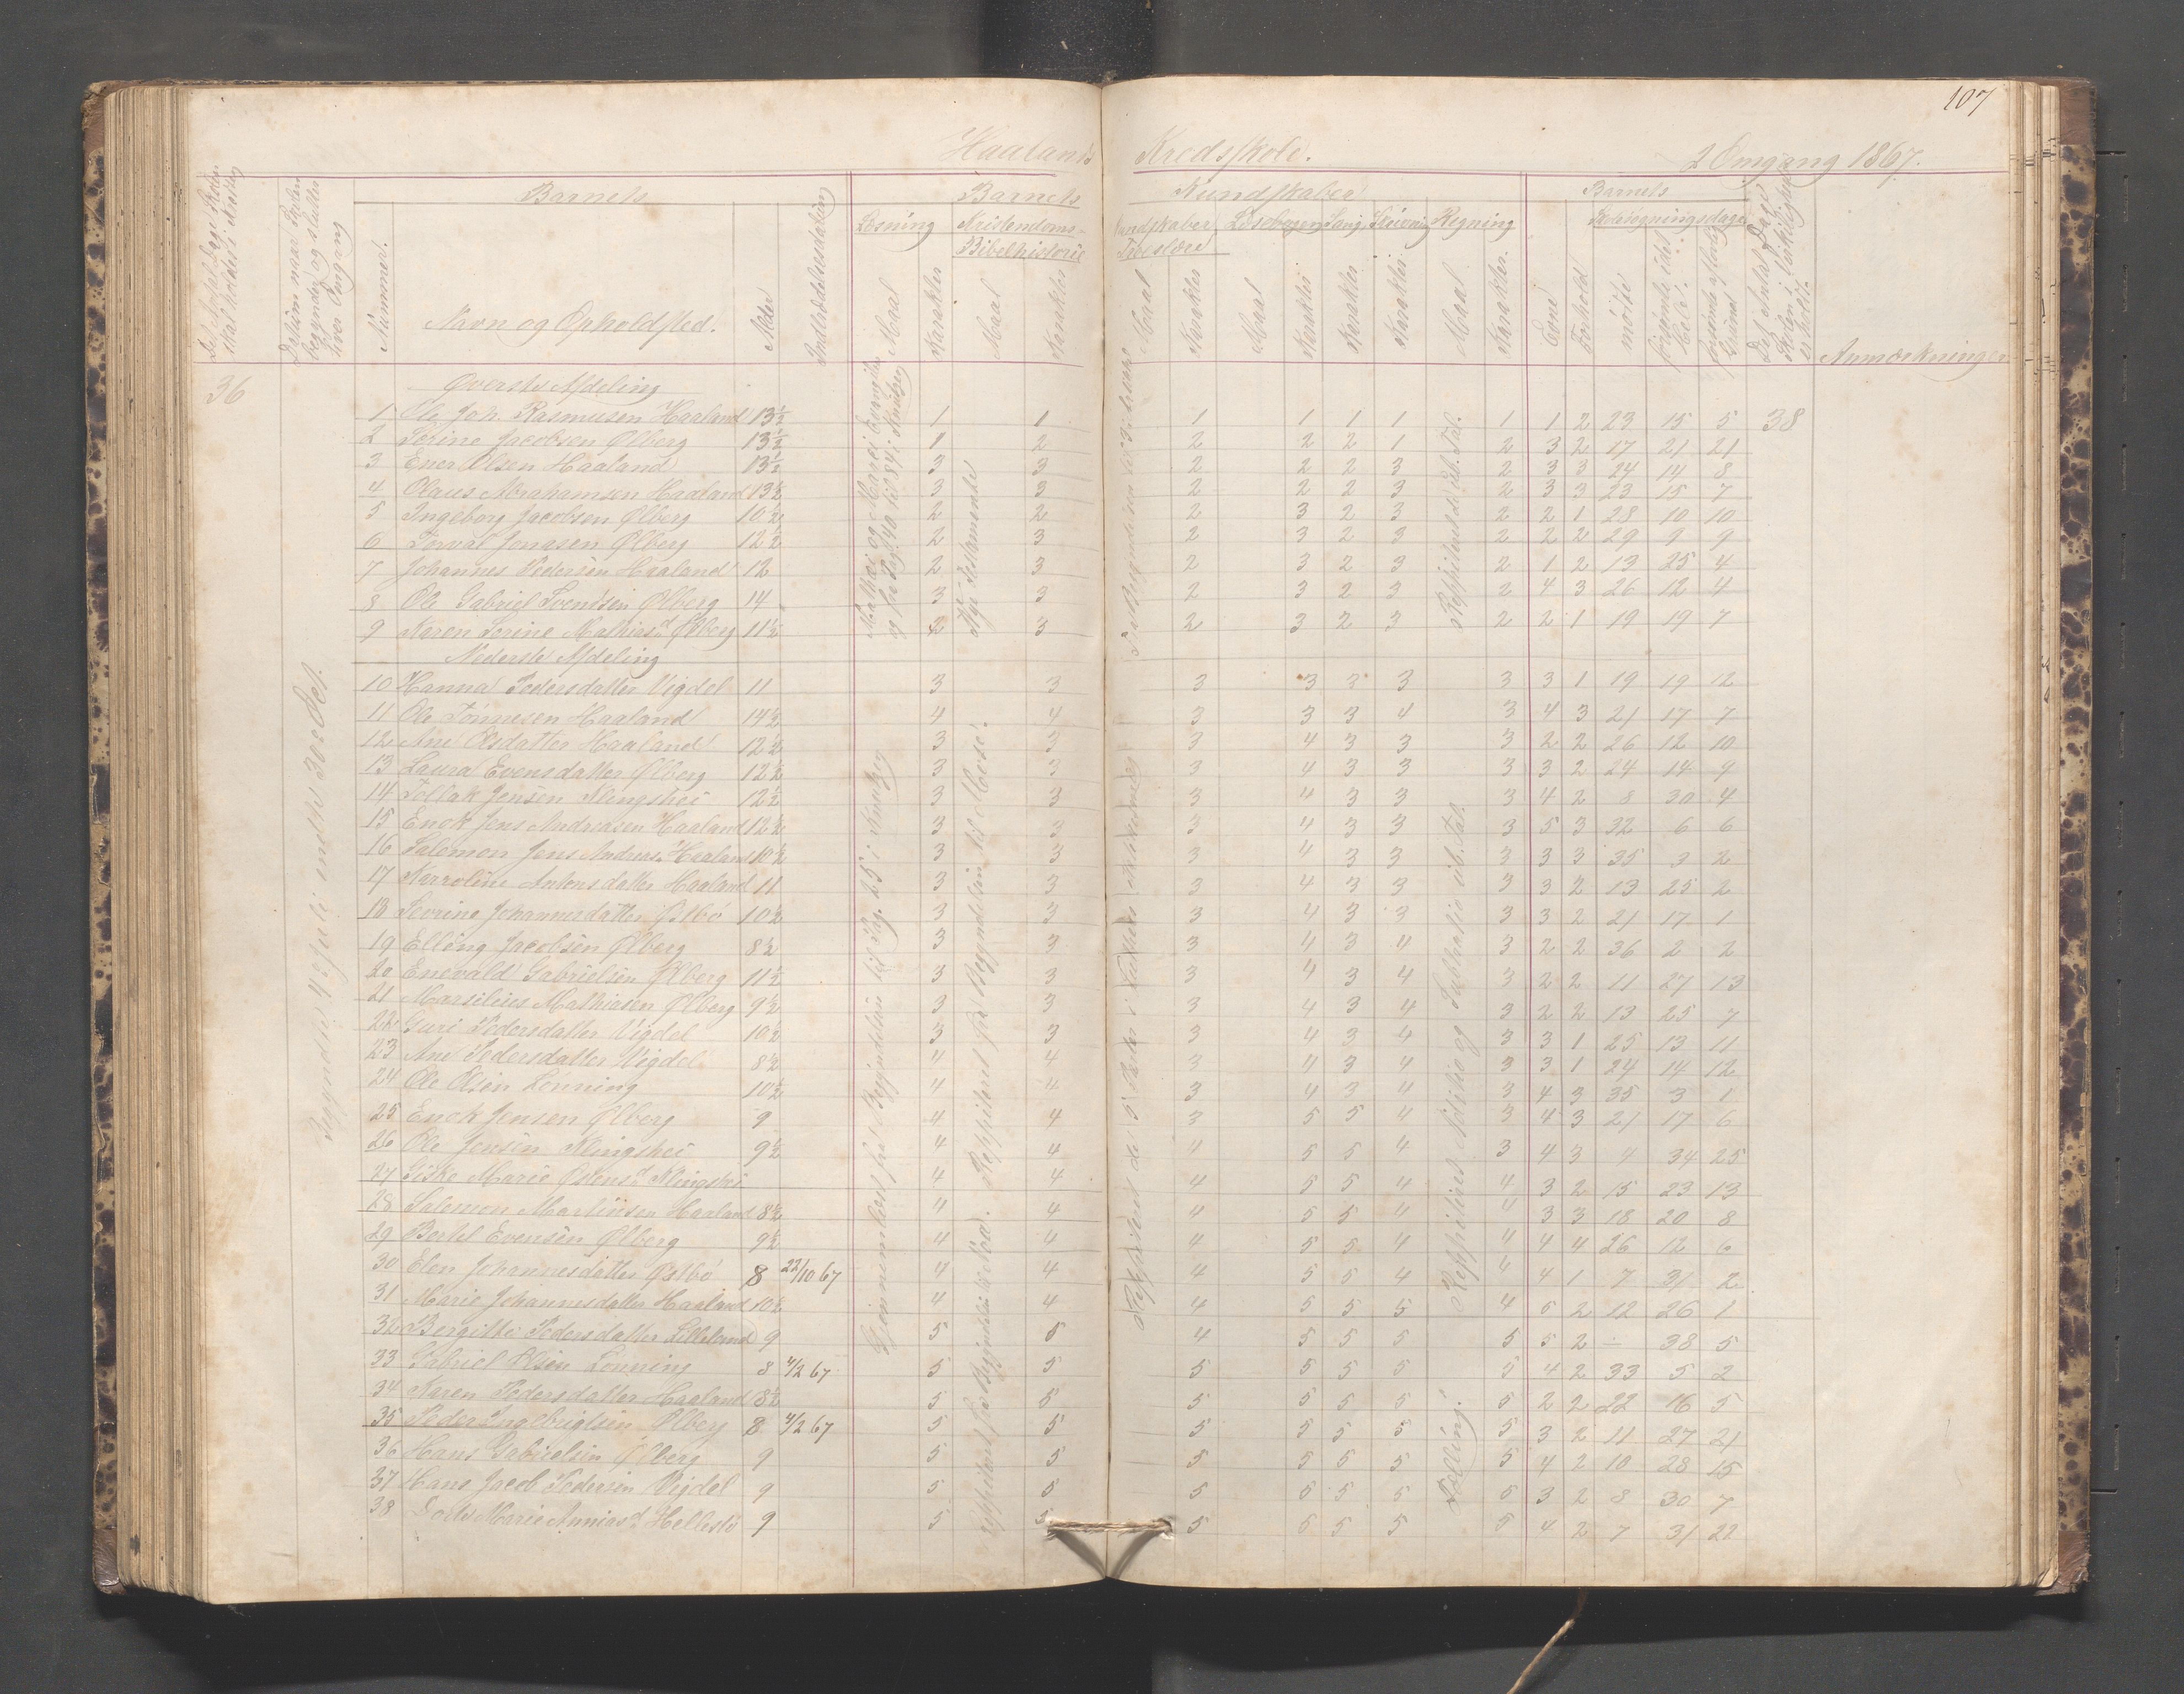 107
Haalands Kredsskole. 2 Omgang 1867.
Barnets
Barnets
Kundskaber
Barnets
Læsning
Kristendoms-
Kundskaber
Læsebogen
Sang
Skrivning
Regning
Skolesøgningsdage
Bibelhistorie
Troeslære
Datum naar Skolen begynder og slutter hver Omgang
Nummer.
Navn og Opholdsted.
Alder
Indtrædelsesdatum
Maal
Karakter
Maal
Karakter
Maal
Karakter
Maal
Karakter
Karakter
Karakter
Maal
Karakter.
Evne
Forhold
mødte
Det Antal Dage Skolen i Virkeligheden er holdt.
Anmærkninger
36
Øverste Afdeling
1 Ole Joh. Rasmusen Haaland 13½ 1 1 1 1 1 1 1 1 2 23 15 5 38
2 Serine Jacobsen Ølberg 13½ 1 2 2 2 2 1 2 3 2 17 21 21
3 Ener Olsen Haaland 13½ 3 3 2 2 2 3 2 3 3 24 14 8
4 Olaus Abrahamsen Haaland 13½ 3 3 2 2 2 3 2 3 3 23 15 7
5 Ingeborg Jacobsen Ølberg 10½ 2 2 2 3 2 3 2 2 1 28 10 10
6 Torval Jonasen Ølberg 12½ 2 3 2 3 2 3 2 2 2 29 9 9
7 Johannes Pedersen Haaland 12 2 3 2 3 2 3 2 1 2 13 25 4
8 Ole Gabriel Svendsen Ølberg 14 3 3 2 3 2 3 2 4 3 26 12 4
9 Karen Serine Mathiasd Ølberg 11½ 2 3 2 3 2 3 2 2 1 19 19 7
Nederste Afdeling
10 Hanna Pedersdatter Vigdel 11 3 3 3 3 3 3 3 3 1 19 19 12
11 Ole Tønnesen Haaland 14½ 4 4 3 3 3 4 3 4 3 21 17 7
12 Ane Olsdatter Haaland 12½ 3 3 3 4 3 3 3 2 2 26 12 10
13 Laura Evensdatter Ølberg 12½ 3 3 3 4 3 3 3 3 2 24 14 9
14 Tollak Jensen Klingshei 12½ 3 3 3 4 3 3 3 4 2 8 30 4
15 Enok Jens Andreasen Haaland 12½ 3 3 3 4 3 3 3 5 3 32 6 6
16 Salomon Jens Andreas. Haaland 10½ 3 3 3 4 3 3 3 3 3 35 3 2
17 Karroline Antonsdatter Haaland 11 3 3 3 4 3 3 3 3 2 13 25 2
18 Sevrine Johannesdatter Østbø 10½ 3 3 3 4 3 3 3 3 2 21 17 1
19 Elling Jacobsen Ølberg 8½ 3 3 3 4 3 4 3 2 2 36 2 2
20 Enevald Gabrielsen Ølberg 11½ 3 3 3 4 3 4 3 2 2 11 27 13
21 Marsilius Mathiasen Ølberg 9½ 3 3 3 4 3 4 3 2 2 13 25 7
22 Guri Pedersdatter Vigdel 10½ 3 3 3 4 3 4 3 3 1 25 13 11
23 Ane Pedersdatter Vigdel 8½ 4 4 3 4 3 4 3 3 1 24 14 12
24 Ole Olsen Lonning 10½ 4 4 3 4 3 4 3 4 3 35 3 1
25 Enok Jensen Ølberg 9 4 4 3 5 5 4 3 4 3 21 17 6
26 Ole Jensen Klingshei 9½ 4 4 4 5 5 4 3 4 3 4 34 25
27 Siske Marie Ostensd Klingshei 4 4 4 5 5 4 4 3 2 15 23 13
28 Salomon Martinsen Haaland 8½ 4 4 4 5 5 4 4 3 3 18 20 8
29 Bertel Evensen Ølberg 9½ 4 4 4 5 5 4 4 4 4 26 12 6
30 Elen Johannesdatter Østbø 8 22/10 67 4 4 4 5 5 4 4 4 1 7 31 2
31 Marie Johannesdatter Haaland 10½ 4 4 4 5 5 5 4 5 2 12 26 1
32 Bergitte Pedersdatter Lilleland 9 5 5 4 5 5 5 5 5 2 ÷ 38 5
33 Gabriel Olsen Lonning 8 4/2 67 5 5 5 5 5 5 5 4 2 33 5 2
34 Karen Pedersdatter Haaland 8½ 5 5 5 5 5 5 5 2 2 22 16 5
35 Peder Ingebrigtsen Ølberg 8 4/2 67 5 5 5 5 5 5 5 3 2 11 27 21
36 Hans Gabrielsen Ølberg 9 5 5 5 5 5 5 5 4 2 10 28 15
37 Hans Jacob Pedersen Vigdel 9 5 5 5 5 5 5 5 3 2 8 30 7
38 Dorte Marie Anniasd Hellestø 9 5 5 5 5 5 5 5 4 2 7 31 22
Begyndte 4de Juli endte 30de Oct.
Nye Testamente
Tælling.